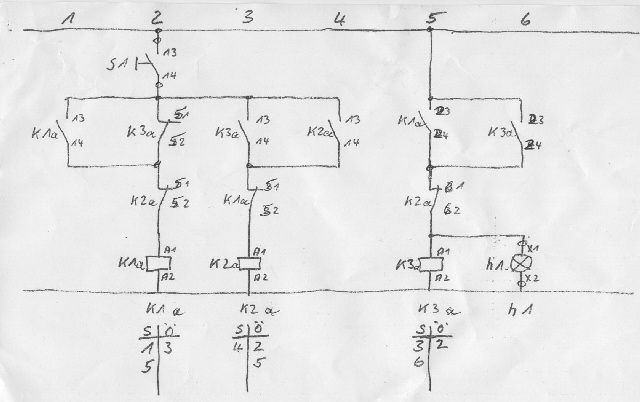 1 2 3 4 5 6
S1 13
14
13 51 13 13 23 23
K1a K3a K3a K2a K1a K3a
14 52 14 14 24 24
51 51 61
K2a K1a K2a
52 52 62
A1 A1 A1 X1
K1a K2a K3a h1
A2 A2 A2 X2
K1a K2a K3a h1
S Ö S Ö S Ö
1 3 4 2 3 2
5 5 6